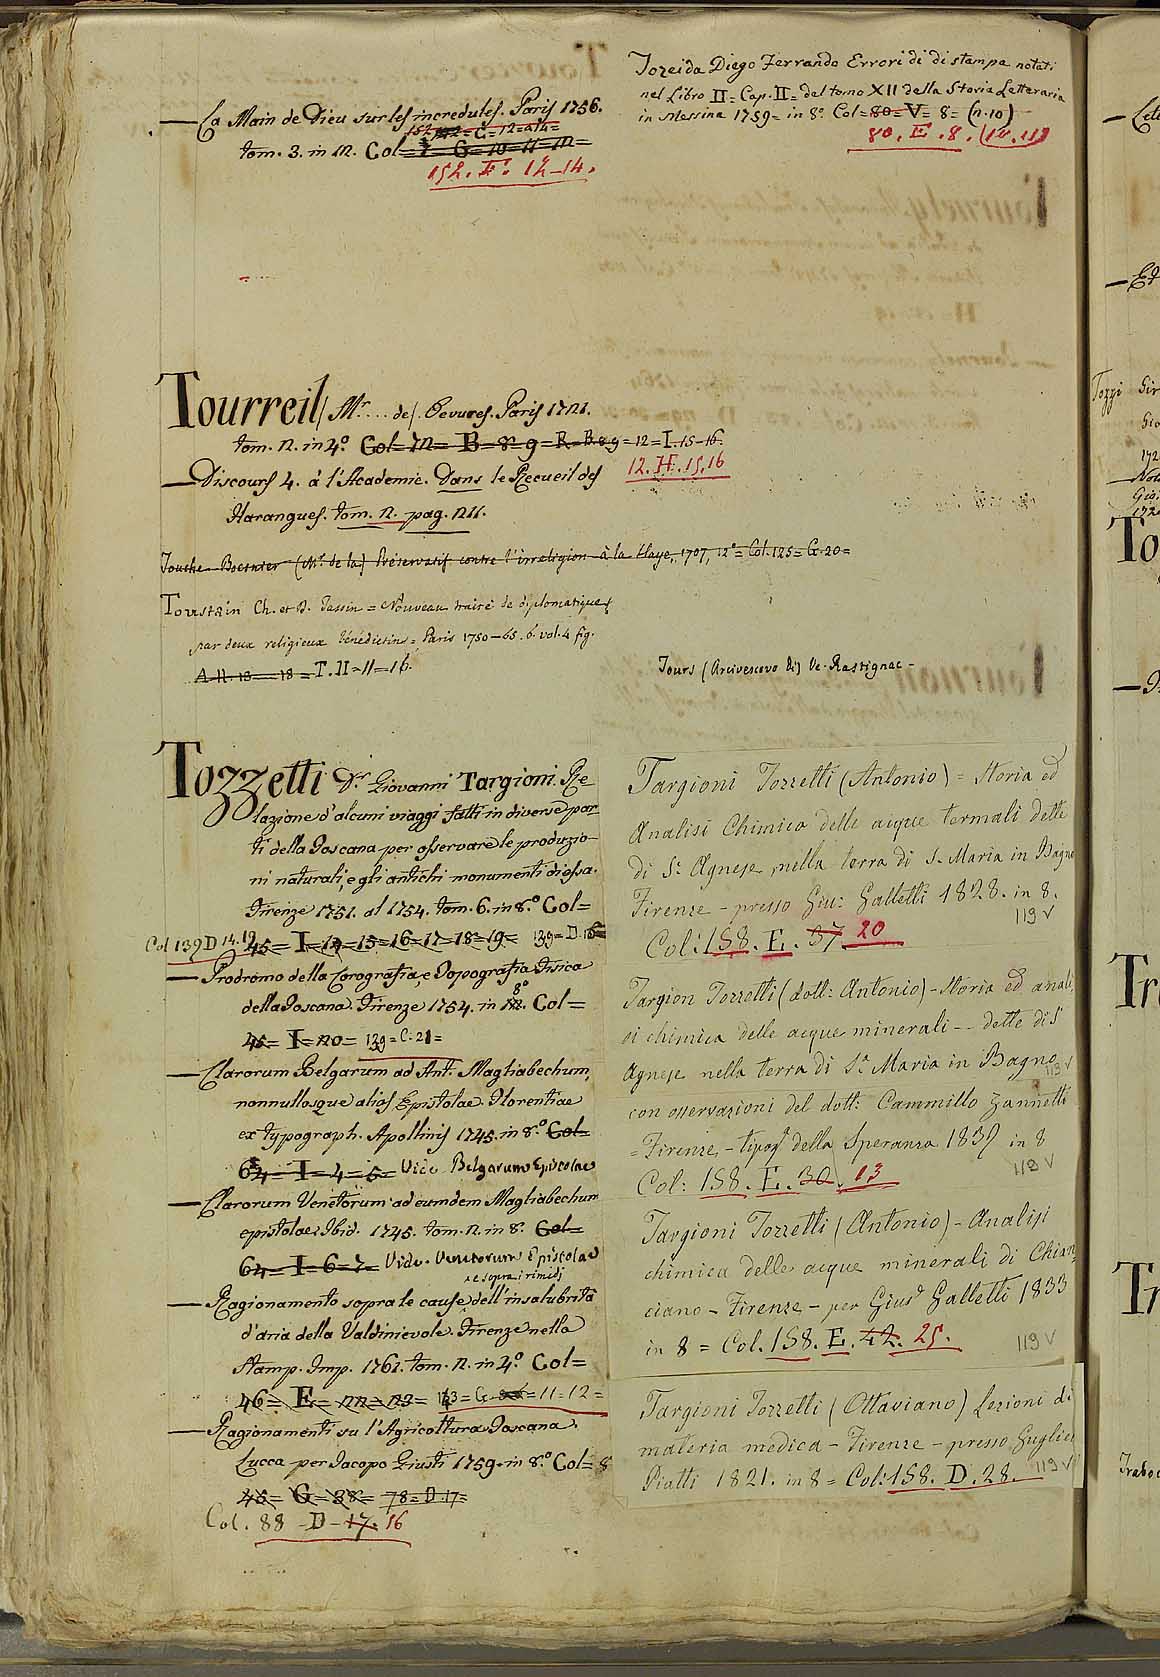 — La Main de Dieu sur les incredules. Paris 1756.
152 = C = 12 = a 14 =
tom. 3. in 12. Col = 7 = G = 10 = 11 = 12 =
152. F. 12-14.
Tourreil (Mr.... de). Oevures. Paris 1721.
tom. 2. in 4.º Col = 72 = B = 8 = 9 = R = B. 8 9 = 12 = I. 15-16.
12. H. 15. 16
— Discours 4. à l'Academie. Dans le Recueil des
Harangues. tom. 2. pag. 211.
Touche-Boesnier (Mr. de la) Préservatif contre l'irreligion à la Haye, 1707, 12º = Col. 125 = G. 20 =
Toustain Ch. et D. Tassin = Nouveau traité de diplomatique
par deux religieux bénédictins = Paris 1750-65. 6. vol. 4 fig.
A. 11. 18 = 18 = T. II = 11 = 16.
Tozzetti Dr. Giovanni Targioni. Re-
lazione d'alcuni viaggi fatti in diverse par-
ti della Toscana per osservare le produzio-
ni naturali, e gli antichi monumenti di essa.
Firenze 1751. al 1754. tom. 6. in 8.º Col =
Col 139 D 14. 19 45 = I = 14 = 15 = 16 = 17 = 18 = 19 = 139 = D. 15
— Prodromo della Corografia, e Topografia Fisica
della Toscana. Firenze 1754. in 8º Col =
45 = I = 20 = 139 = C. 21 =
— Clarorum Belgarum ad Ant. Magliabechum,
nonnullosque alios Epistolae. Florentiae
ex typograph. Apollinis 1745. in 8.º Col =
64 = I = 4 = 5 = Vide Belgarum Epistolae
— Clarorum Venetorum ad eumdem Magliabechum
epistolae. Ibid. 1745. tom. 2. in 8. Col =
64 = I = 6 = 7 = Vide. Venetorum Epistolae
e sopra i rimedj
— Ragionamento sopra le cause dell'insalubrità
d'aria della Valdinievole. Firenze nella
Stamp. Imp. 1761. tom. 2. in 4.º Col =
46 = E = 22 = 23 = 133 = G = 11 = 12 =
— Ragionamenti su l'Agricoltura Toscana.
Lucca per Jacopo Giusti 1759. in 8.º Col = 8
45 = G = 38 = 78 = D. 17 =
Col. 88 - D - 17. 16
Tozeida Diego Ferrando Errori di di stampa notati
nel Libro II = Cap. II = del tomo XII della Storia Letteraria
in Messina 1759 = in 8.º Col = 80 = V = 8 = (n. 10)
80. E. 8. (10. 11)
Tours (Arcivescovo di) Ve. Rastignac -
Targioni Tozzetti (Antonio) = Storia ed
Analisi Chimica delle acque termali dette
di S. Agnese nella terra di S. Maria in Bagno
Firenze - presso Giu: Galletti 1828. in 8.
119 v
Col: 158. E. 37 20
Targion Tozzetti (dott: Antonio) - Storia ed anali,
si chimica delle acque minerali -- dette di S.
Agnese nella terra di S.ª Maria in Bagno
113 v
con osservazioni del dott: Cammillo Zannetti
= Firenze - tipogª della Speranza 1839 in 8
119 v
Col: 158. E. 30. 13
Targioni Tozzetti (Antonio) - Analisi
chimica delle acque minerali di Chian
ciano - Firenze - per Giusº Galletti 1833
in 8 = Col. 158. E. 42. 25. 119 v
Targioni Tozzetti (Ottaviano) Lezioni di
materia medica - Firenze - presso Gugliel
Piatti 1821. in 8 = Col: 158. D. 28. 119 v